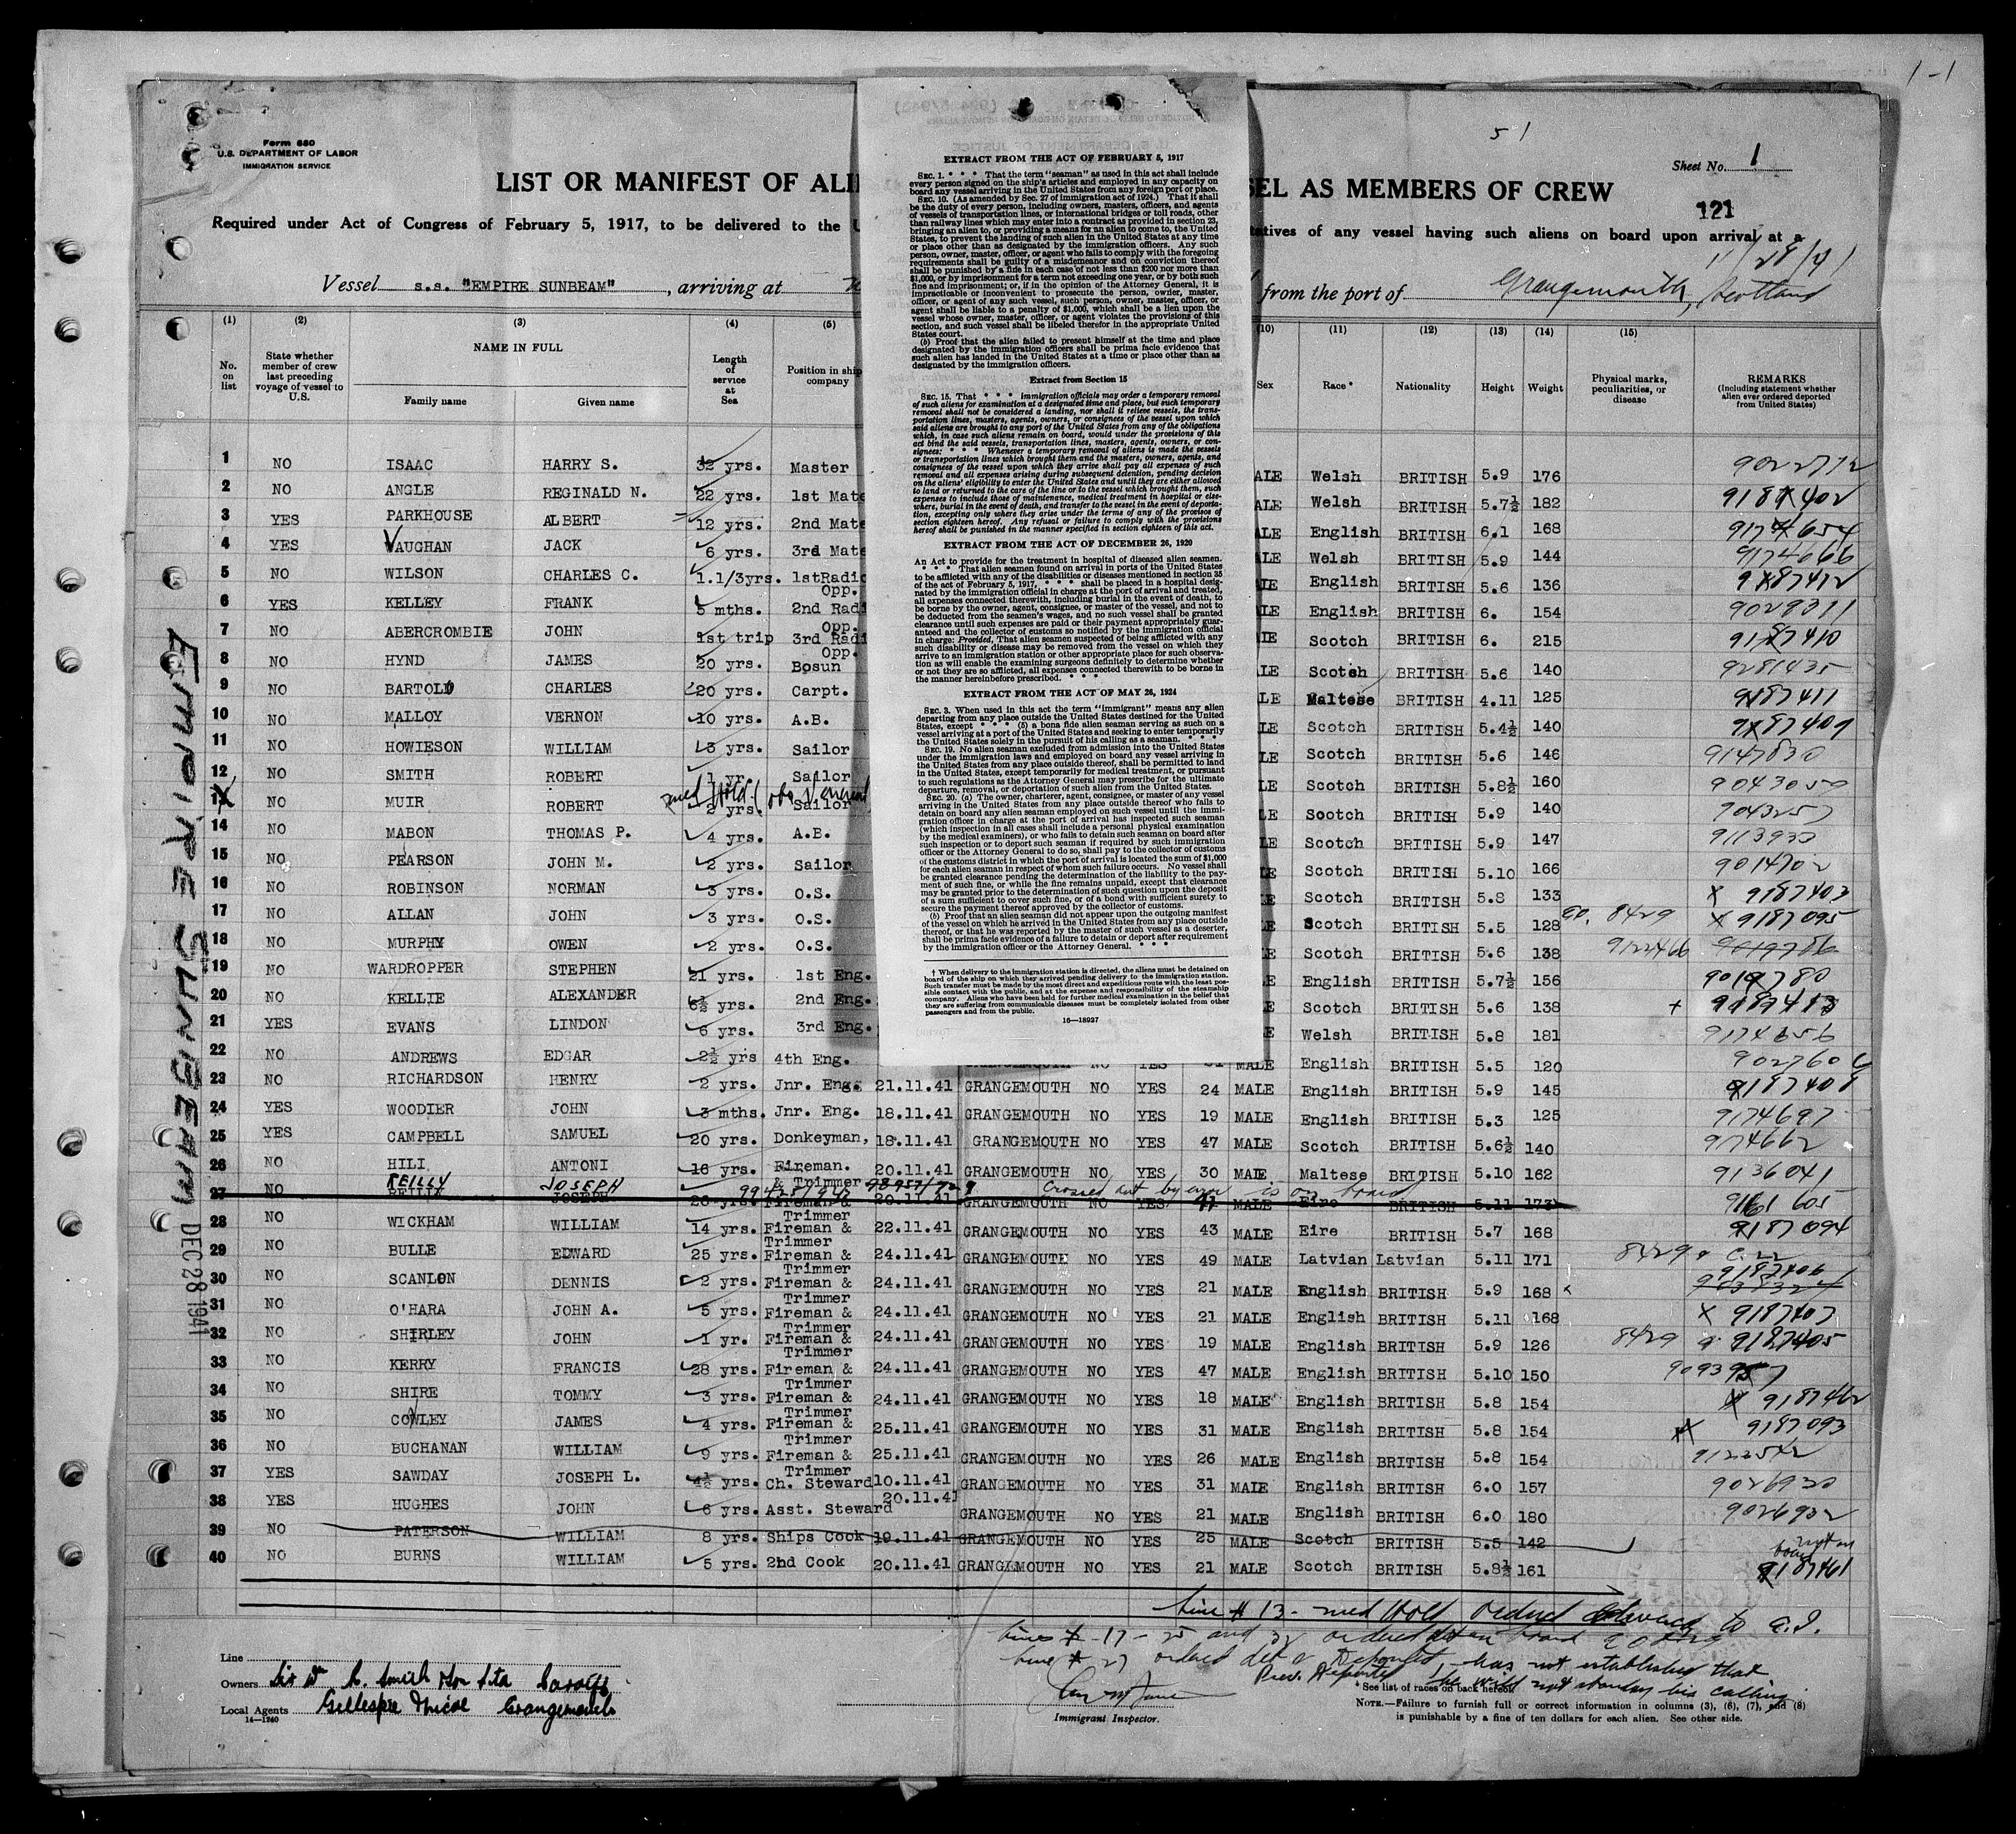 1-1
51
Form 680
U.S. DEPARTMENT OF LABOR
IMMIGRATION SERVICE
Sheet No. 1
LIST OR MANIFEST OF ALIE
SEL AS MEMBERS OF CREW
121
Required under Act of Congress of February 5, 1917, to be delivered to the U
tatives of any vessel having such aliens on board upon arrival at a
11/28/41
Vessel s.s. "EMPIRE SUNBEAM", arriving at
from the port of Grangemouth, Scotland
EXTRACT FROM THE ACT OF FEBRUARY 5, 1917
SEC. 1. * * * That the term "seaman" as used in this act shall include
every person signed on the ship's articles and employed in any capacity on
board any vessel arriving in the United States from any foreign port or place.
SEC. 10. (As amended by Sec. 27 of immigration act of 1924.) That it shall
be the duty of every person, including owners, masters, officers, and agents
of vessels of transportation lines, or international bridges or toll roads, other
than railway lines which may enter into a contract as provided in section 23,
bringing an alien to, or providing a means for an alien to come to, the United
States, to prevent the landing of such alien in the United States at any time
or place other than as designated by the immigration officers. Any such
person, owner, master, officer, or agent who fails to comply with the foregoing
requirements shall be guilty of a misdemeanor and on conviction thereof
shall be punished by a fine in each case of not less than $200 nor more than
$1,000, or by imprisonment for a term not exceeding one year, or by both such
fine and imprisonment; or, if in the opinion of the Attorney General, it is
impracticable or inconvenient to prosecute the person, owner, master,
officer, or agent of any such vessel, such person, owner, master, officer, or
agent shall be liable to a penalty of $1,000, which shall be a lien upon the
vessel whose owner, master, officer, or agent violates the provisions of this
section, and such vessel shall be libeled therefor in the appropriate United
States court.
(b) Proof that the alien failed to present himself at the time and place
designated by the immigration officers shall be prima facie evidence that
such alien has landed in the United States at a time or place other than as
designated by the immigration officers.
Extract from Section 15
SEC. 15. That * * * immigration officials may order a temporary removal
of such aliens for examination at a designated time and place, but such temporary
removal shall not be considered a landing, nor shall it relieve vessels, the trans-
portation lines, masters, agents, owners, or consignees of the vessel upon which
said aliens are brought to any port of the United States from any of the obligations
which, in case such aliens remain on board, would under the provisions of this
act bind the said vessels, transportation lines, masters, agents, owners, or con-
signees: * * * Whenever a temporary removal of aliens is made the vessels
or transportation lines which brought them and the masters, owners, agents, and
consignees of the vessel upon which they arrive shall pay all expenses of such
removal and all expenses arising during subsequent detention, pending decision
on the aliens' eligibility to enter the United States and until they are either allowed
to land or returned to the care of the line or to the vessel which brought them, such
expenses to include those of maintenance, medical treatment in hospital or else-
where, burial in the event of death, and transfer to the vessel in the event of deporta-
tion, excepting only where they arise under the terms of any of the provisos of
section eighteen hereof. Any refusal or failure to comply with the provisions
hereof shall be punished in the manner specified in section eighteen of this act.
EXTRACT FROM THE ACT OF DECEMBER 26, 1920
An Act to provide for the treatment in hospital of diseased alien seamen.
* * * * That alien seamen found on arrival in ports of the United States
to be afflicted with any of the disabilities or diseases mentioned in section 35
of the act of February 5, 1917, * * * shall be placed in a hospital desig-
nated by the immigration official in charge at the port of arrival and treated,
all expenses connected therewith, including burial in the event of death, to
be borne by the owner, agent, consignee, or master of the vessel, and not to
be deducted from the seamen's wages, and no such vessel shall be granted
clearance until such expenses are paid or their payment appropriately guar-
anteed and the collector of customs so notified by the immigration official
in charge: Provided, That alien seamen suspected of being afflicted with any
such disability or disease may be removed from the vessel on which they
arrive to an immigration station or other appropriate place for such observa-
tion as will enable the examining surgeons definitely to determine whether
or not they are so afflicted, all expenses connected therewith to be borne in
the manner hereinbefore prescribed. * * *
EXTRACT FROM THE ACT OF MAY 26, 1924
SEC. 3. When used in this act the term "immigrant" means any alien
departing from any place outside the United States destined for the United
States, except * * * * (5) a bona fide alien seaman serving as such on a
vessel arriving at a port of the United States and seeking to enter temporarily
the United States solely in the pursuit of his calling as a seaman. * * * *
SEC. 19. No alien seaman excluded from admission into the United States
under the immigration laws and employed on board any vessel arriving in
the United States from any place outside thereof, shall be permitted to land
in the United States, except temporarily for medical treatment, or pursuant
to such regulations as the Attorney General may prescribe for the ultimate
departure, removal, or deportation of such alien from the United States.
SEC. 20. (a) The owner, charterer, agent, consignee, or master of any vessel
arriving in the United States from any place outside thereof who fails to
detain on board any alien seaman employed on such vessel until the immi-
gration officer in charge at the port of arrival has inspected such seaman
(which inspection in all cases shall include a personal physical examination
by the medical examiners), or who fails to detain such seaman on board after
such inspection or to deport such seaman if required by such immigration
officer or the Attorney General to do so, shall pay to the collector of customs
of the customs district in which the port of arrival is located the sum of $1,000
for each alien seaman in respect of whom such failure occurs. No vessel shall
be granted clearance pending the determination of the liability to the pay-
ment of such fine, or while the fine remains unpaid, except that clearance
may be granted prior to the determination of such question upon the deposit
of a sum sufficient to cover such fine, or of a bond with sufficient surety to
secure the payment thereof approved by the collector of customs.
(b) Proof that an alien seaman did not appear upon the outgoing manifest
of the vessel on which he arrived in the United States from any place outside
thereof, or that he was reported by the master of such vessel as a deserter,
shall be prima facie evidence of a failure to detain or deport after requirement
by the immigration officer or the Attorney General. * * *
† When delivery to the immigration station is directed, the aliens must be detained on
board of the ship on which they arrived pending delivery to the immigration station.
Such transfer must be made by the most direct and expeditious route with the least pos-
sible contact with the public, and at the expense and responsibility of the steamship
company. Aliens who have been held for further medical examination in the belief that
they are suffering from communicable diseases must be completely isolated from other
passengers and from the public.
16—18927
(1) (2) (3) (4) (5) (10) (11) (12) (13) (14) (15)
No. on list
State whether member of crew last preceding voyage of vessel to U.S.
NAME IN FULL
Family name
Given name
Length of service at Sea
Position in ship company
Sex
Race*
Nationality
Height
Weight
Physical marks, peculiarities, or disease
REMARKS
(Including statement whether alien ever ordered deported from United States)
1 NO ISAAC HARRY S. 32 yrs. Master ALE Welsh BRITISH 5.9 176 9022772
2 NO ANGLE REGINALD N. 22 yrs. 1st Mate ALE Welsh BRITISH 5.7½ 182 9187402
3 YES PARKHOUSE ALBERT 12 yrs. 2nd Mate ALE English BRITISH 6.1 168 9174654
4 YES VAUGHAN JACK 6 yrs. 3rd Mate ALE Welsh BRITISH 5.9 144 9174666
5 NO WILSON CHARLES C. 1.1/3yrs. 1stRadio Opp. English BRITISH 5.6 136 9187412
6 YES KELLEY FRANK 5 mths. 2nd Radi Opp. ALE English BRITISH 6. 154 9028311
7 NO ABERCROMBIE JOHN 1st trip 3rd Radi Opp. Scotch BRITISH 6. 215 9187410
8 NO HYND JAMES 20 yrs. Bosun ALE Scotch BRITISH 5.6 140 9281435
9 NO BARTOLO CHARLES 20 yrs. Carpt. LE Maltese BRITISH 4.11 125 9187411
10 NO MALLOY VERNON 10 yrs. A.B. LE Scotch BRITISH 5.4½ 140 9187409
11 NO HOWIESON WILLIAM 3 yrs. Sailor LE Scotch BRITISH 5.6 146 9147830
12 NO SMITH ROBERT 1 yr. Sailor LE Scotch BRITISH 5.8½ 160 9043050
med Hold (obs Venereal)
13 NO MUIR ROBERT 2 yrs. Sailor LE Scotch BRITISH 5.9 140 9043257
14 NO MABON THOMAS P. 4 yrs. A.B. LE Scotch BRITISH 5.9 147 9113930
15 NO PEARSON JOHN M. 2 yrs. Sailor Scotch BRITISH 5.10 166 9014702
16 NO ROBINSON NORMAN 3 yrs. O.S. Scotch BRITISH 5.8 133 x 9187403
17 NO ALLAN JOHN 3 yrs. O.S. Scotch BRITISH 5.5 128 8429 x 9187095
18 NO MURPHY OWEN 2 yrs. O.S. Scotch BRITISH 5.6 138 9122466
19 NO WARDROPPER STEPHEN 21 yrs. 1st Eng. English BRITISH 5.7½ 156 9019780
20 NO KELLIE ALEXANDER 6½ yrs. 2nd Eng. E Scotch BRITISH 5.6 138
21 YES EVANS LINDON 6 yrs. 3rd Eng. E Welsh BRITISH 5.8 181 9174656
22 NO ANDREWS EDGAR 2½ yrs 4th Eng. GRANGEMOUTH NO YES MALE English BRITISH 5.5 120 902760
23 NO RICHARDSON HENRY 2 yrs. Jnr. Eng. 21.11.41 GRANGEMOUTH NO YES 24 MALE English BRITISH 5.9 145 9187408
24 YES WOODIER JOHN 3 mths. Jnr. Eng. 18.11.41 GRANGEMOUTH NO YES 19 MALE English BRITISH 5.3 125 9174697
25 YES CAMPBELL SAMUEL 20 yrs. Donkeyman, 18.11.41 GRANGEMOUTH NO YES 47 MALE Scotch BRITISH 5.6½ 140 9174662
26 NO HILI ANTONI 16 yrs. Fireman. & Trimmer 20.11.41 GRANGEMOUTH NO YES 30 MALE Maltese BRITISH 5.10 162 9136041
REILLY JOSEPH Crossed out by error is on board
27 NO REILLY JOSEPH 26 yrs. Fireman & Trimmer 20.11.41 GRANGEMOUTH NO YES MALE Eire BRITISH 5.11 173 9161605
28 NO WICKHAM WILLIAM 14 yrs. Fireman & Trimmer 22.11.41 GRANGEMOUTH NO YES 43 MALE Eire BRITISH 5.7 168 9187094
29 NO BULLE EDWARD 25 yrs. Fireman & Trimmer 24.11.41 GRANGEMOUTH NO YES 49 MALE Latvian Latvian 5.11 171 8429
30 NO SCANLON DENNIS 2 yrs. Fireman & Trimmer 24.11.41 GRANGEMOUTH NO YES 21 MALE English BRITISH 5.9 168 9187406
31 NO O'HARA JOHN A. 5 yrs. Fireman & Trimmer 24.11.41 GRANGEMOUTH NO YES 21 MALE English BRITISH 5.11 168 x 9187407
32 NO SHIRLEY JOHN 1 yr. Fireman & Trimmer 24.11.41 GRANGEMOUTH NO YES 19 MALE English BRITISH 5.9 126 8429 9187405
33 NO KERRY FRANCIS 28 yrs. Fireman & Trimmer 24.11.41 GRANGEMOUTH NO YES 47 MALE English BRITISH 5.10 150 9093957
34 NO SHIRE TOMMY 3 yrs. Fireman & Trimmer 24.11.41 GRANGEMOUTH NO YES 18 MALE English BRITISH 5.8 154 x 9187462
35 NO COWLEY JAMES 4 yrs. Fireman & Trimmer 25.11.41 GRANGEMOUTH NO YES 31 MALE English BRITISH 5.8 154 9187093
36 NO BUCHANAN WILLIAM 9 yrs. Fireman & Trimmer 25.11.41 GRANGEMOUTH NO YES 26 MALE English BRITISH 5.8 154 9122542
37 YES SAWDAY JOSEPH L. 4½ yrs. Ch. Steward 10.11.41 GRANGEMOUTH NO YES 31 MALE English BRITISH 6.0 157 9026930
38 YES HUGHES JOHN 6 yrs. Asst. Steward 20.11.41 GRANGEMOUTH NO YES 21 MALE English BRITISH 6.0 180 9026932
39 NO PATERSON WILLIAM 8 yrs. Ships Cook 19.11.41 GRANGEMOUTH NO YES 25 MALE Scotch BRITISH 5.5 142 not on board
40 NO BURNS WILLIAM 5 yrs. 2nd Cook 20.11.41 GRANGEMOUTH NO YES 21 MALE Scotch BRITISH 5.8½ 161 9187461
EMPIRE SUNBEAM
DEC 28 1941
Line # 13 - med Hold ordered to
Lines # 17 - 25 and 32 ordered det on board
Line # 27 ordered det & Deported - has not established that
Prev. Deported he will not abandon his calling
Line
Owners Sir Wm R. Smith & Son Ltd Cardiff
Local Agents Gillespie Nicol Grangemouth
14—1240
Immigrant Inspector.
* See list of races on back hereof.
NOTE.—Failure to furnish full or correct information in columns (3), (6), (7), and (8)
is punishable by a fine of ten dollars for each alien. See other side.